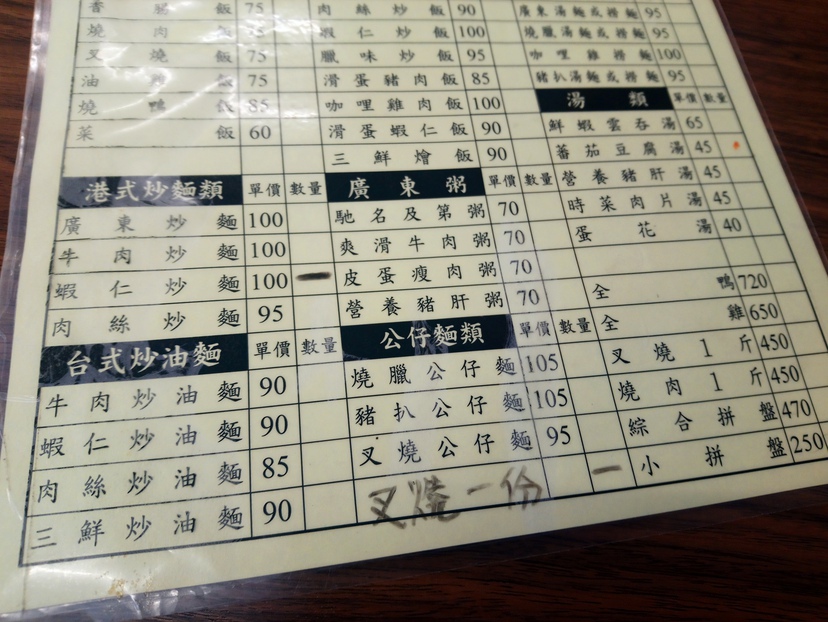 香 飯 75
燒肉飯 75
叉燒飯 75
油 飯 75
燒鴨飯 85
菜飯 60
港式炒麵類 單價 數量
廣東炒麵 100
牛肉炒麵 100
蝦仁炒麵 100 一
肉絲炒麵 95
台式炒油麵 單價 數量
牛肉炒油麵 90
蝦仁炒油麵 90
肉絲炒油麵 85
三鮮炒油麵 90
肉絲炒飯 90
蝦仁炒飯 100
臘味炒飯 95
滑蛋豬肉飯 85
咖哩雞肉飯 100
滑蛋蝦仁飯 90
三鮮燴飯 90
廣東粥 單價 數量
馳名及第粥 70
爽滑牛肉粥 70
皮蛋瘦肉粥 70
營養豬肝粥 70
公仔麵類 單價 數量
燒臘公仔麵 105
豬扒公仔麵 105
叉燒公仔麵 95
叉燒一份
廣東湯麵或撈麵 95
燒臘湯麵或撈麵 95
咖哩雞撈麵 100
豬扒湯麵或撈麵 95
湯類 單價 數量
鮮蝦雲吞湯 65
蕃茄豆腐湯 45
營養豬肝湯 45
時菜肉片湯 45
蛋花湯 40
全鴨 720
全雞 650
叉燒1斤 450
燒肉1斤 450
綜合拼盤 470
一 小拼盤 250